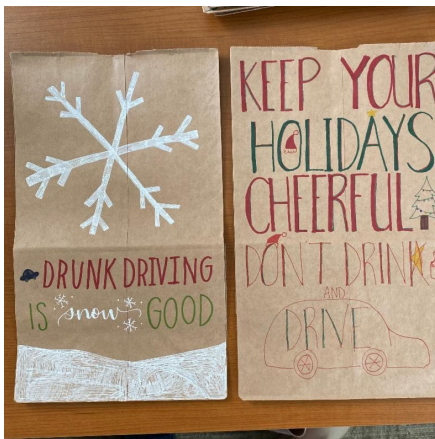 DRUNK DRIVING
IS snow GOOD
KEEP YOUR
HOLIDAYS
CHEERFUL
DON'T DRINK
AND
DRIVE